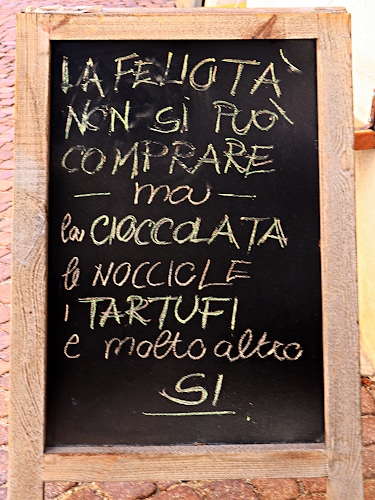 LA FELICITÀ
NON SI PUÒ
COMPRARE
— ma —
la CIOCCOLATA
le NOCCIOLE
i TARTUFI
e molto altro
SI